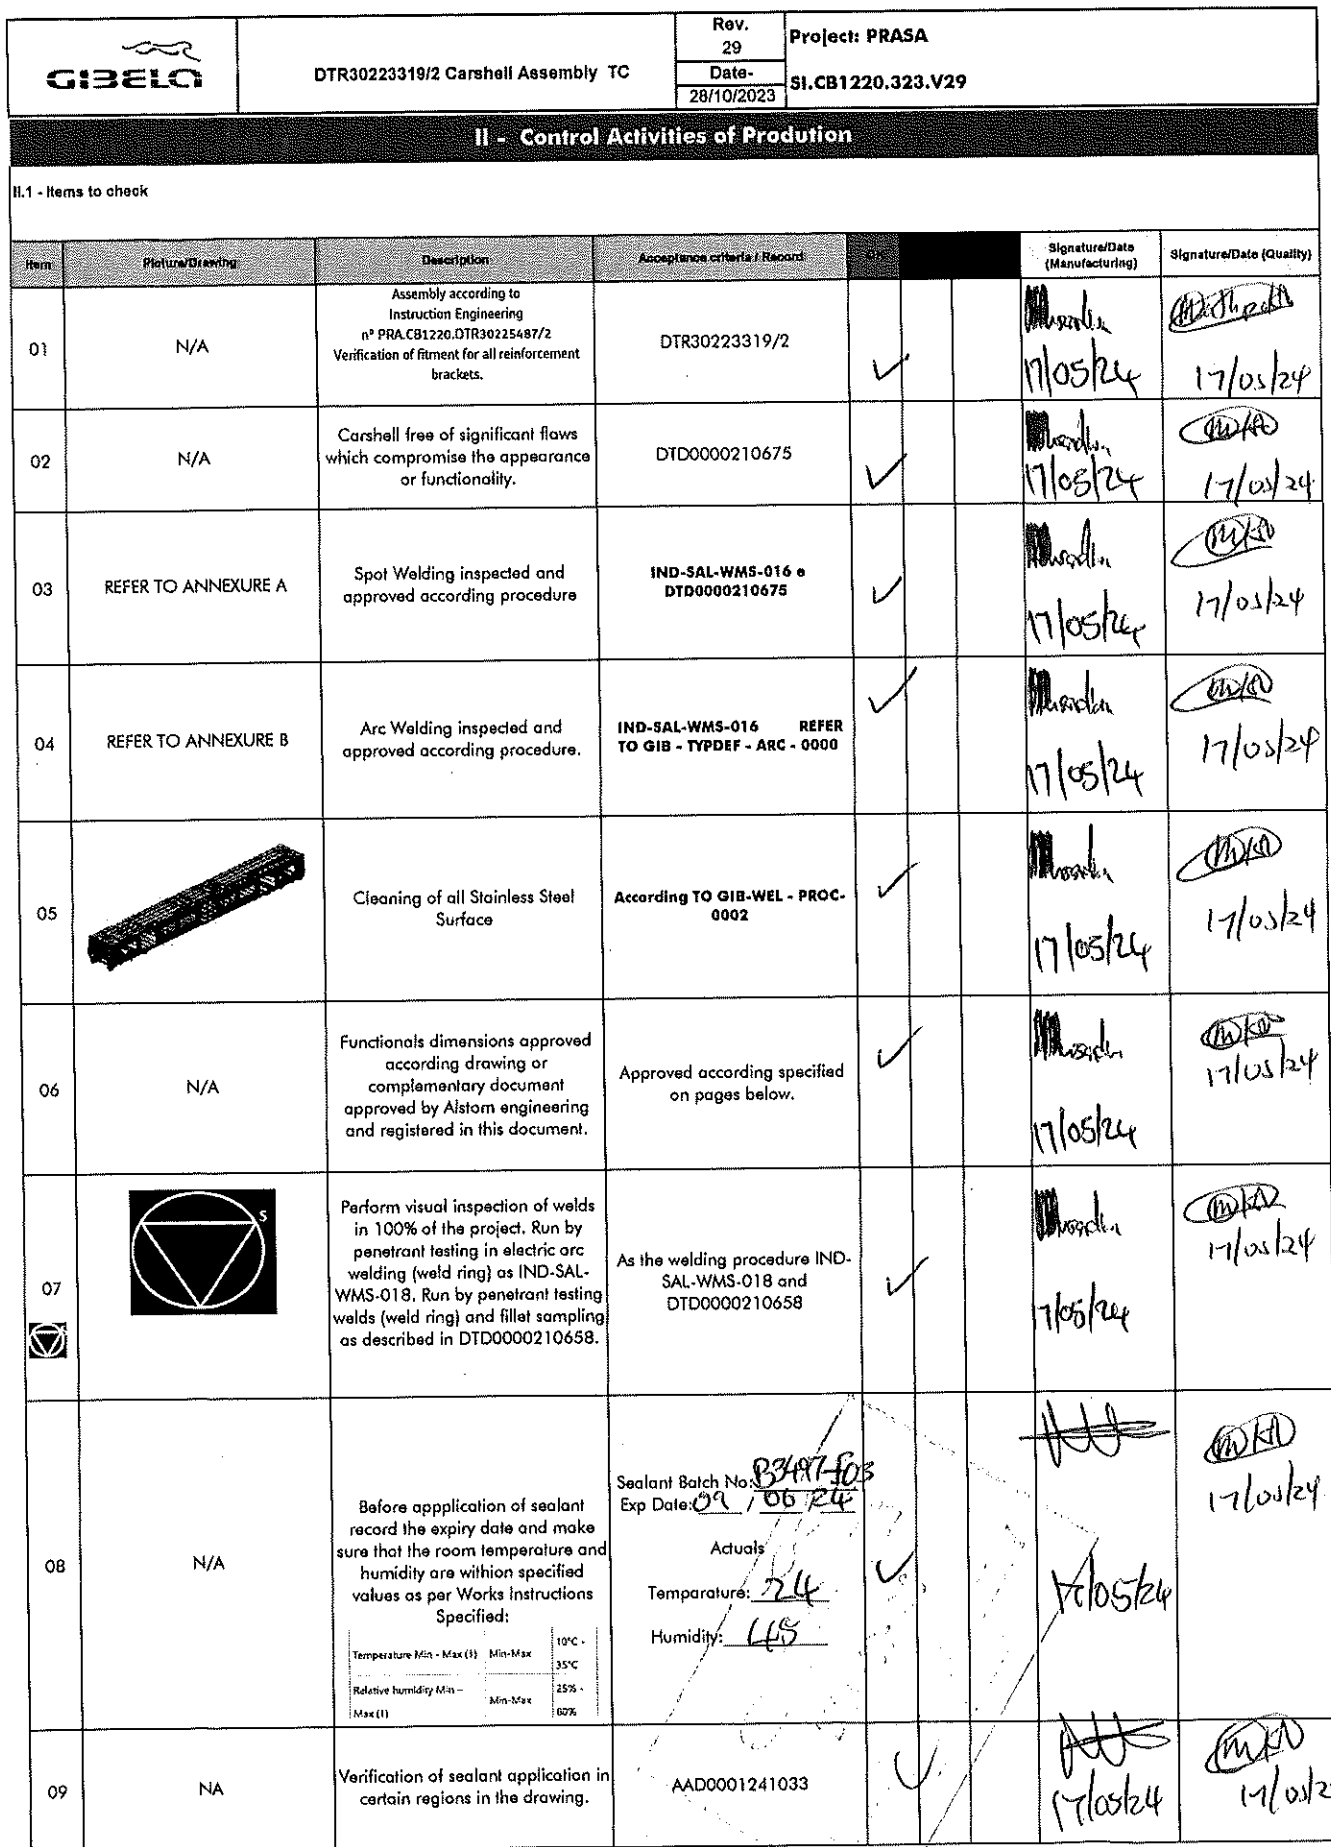 GIBELA
DTR30223319/2 Carshell Assembly TC
Rev.
29
Date-
28/10/2023
Project: PRASA
SI.CB1220.323.V29
II - Control Activities of Prodution
II.1 - Items to check
Item Picture/Drawing Description Acceptance criteria / Record OK Signature/Date (Manufacturing) Signature/Date (Quality)
01
N/A
Assembly according to
Instruction Engineering
nº PRA.CB1220.DTR30225487/2
Verification of fitment for all reinforcement
brackets.
DTR30223319/2
17/05/24
17/05/24
02
N/A
Carshell free of significant flaws
which compromise the appearance
or functionality.
DTD0000210675
17/05/24
17/05/24
03
REFER TO ANNEXURE A
Spot Welding inspected and
approved according procedure
IND-SAL-WMS-016 e
DTD0000210675
17/05/24
17/05/24
04
REFER TO ANNEXURE B
Arc Welding inspected and
approved according procedure.
IND-SAL-WMS-016 REFER
TO GIB - TYPDEF - ARC - 0000
17/05/24
17/05/24
05
Cleaning of all Stainless Steel
Surface
According TO GIB-WEL - PROC-
0002
17/05/24
17/05/24
06
N/A
Functionals dimensions approved
according drawing or
complementary document
approved by Alstom engineering
and registered in this document.
Approved according specified
on pages below.
17/05/24
17/05/24
07
S
Perform visual inspection of welds
in 100% of the project. Run by
penetrant testing in electric arc
welding (weld ring) as IND-SAL-
WMS-018. Run by penetrant testing
welds (weld ring) and fillet sampling
as described in DTD0000210658.
As the welding procedure IND-
SAL-WMS-018 and
DTD0000210658
17/05/24
17/05/24
08
N/A
Before appplication of sealant
record the expiry date and make
sure that the room temperature and
humidity are withion specified
values as per Works Instructions
Specified:
Temperature Min - Max (1) Min-Max 10°C -
35°C
Relative humidity Min -
Max (1) Min-Max 25% -
60%
Sealant Batch No:
Exp Date: 09 / 06 24
Actuals
Temparature: 24
Humidity: 45
17/05/24
17/05/24
09
NA
Verification of sealant application in
certain regions in the drawing.
AAD0001241033
17/05/24
17/05/2